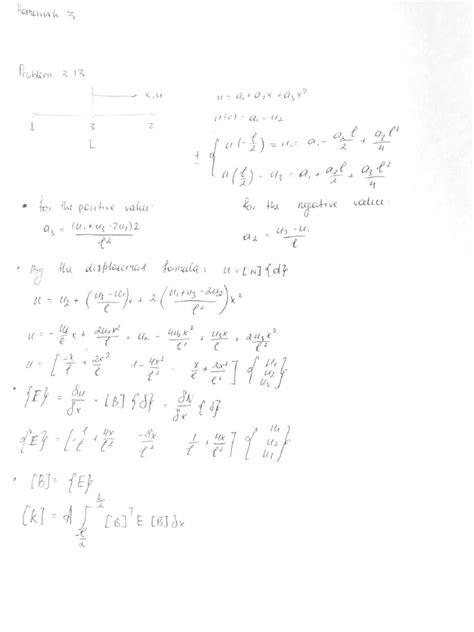 Homework 3
Problem 3.13
x, u
1 3 2
L
u = a₁ + a₂x + a₃x²
u(0) = a₁ = u₂
± { u(-l/2) = u₁ = a₁ - a₂l/2 + a₃l²/4
u(l/2) = u₃ = a₁ + a₂l/2 + a₃l²/4
• for the positive value:
a₃ = (u₁ + u₃ - 2u₂)2 / l²
for the negative value:
a₂ = u₃ - u₁ / l
• By the displacement formula: u = [N]{d}
u = u₂ + (u₃ - u₁ / l)x + 2(u₁ + u₃ - 2u₂ / l²)x²
u = -u₁/l x + 2u₁x²/l² + u₂ - 4u₂x²/l² + u₃x/l + 2u₃x²/l²
u = [-x/l + 2x²/l² 1 - 4x²/l² x/l + 2x²/l²] {u₁ u₂ u₃}
• {E} = δu/δx = [B]{d} = δN/δx {d}
{E} = [-1/l + 4x/l² -8x/l² 1/l + 4x/l²] {u₁ u₂ u₃}
• [B] = {E}
[k] = A ∫ -l/2 L/2 [B]ᵀ E [B] dx